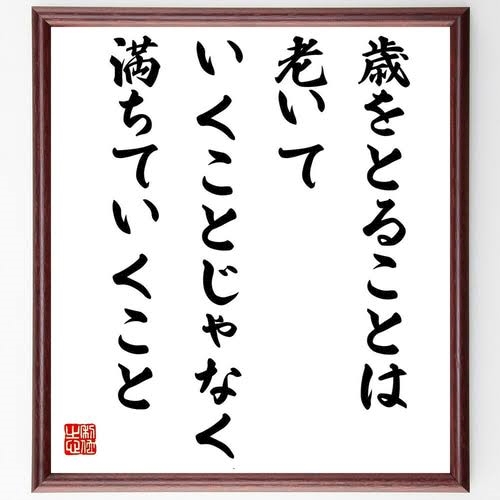 歳をとることは
老いて
いくことじゃなく
満ちていくこと